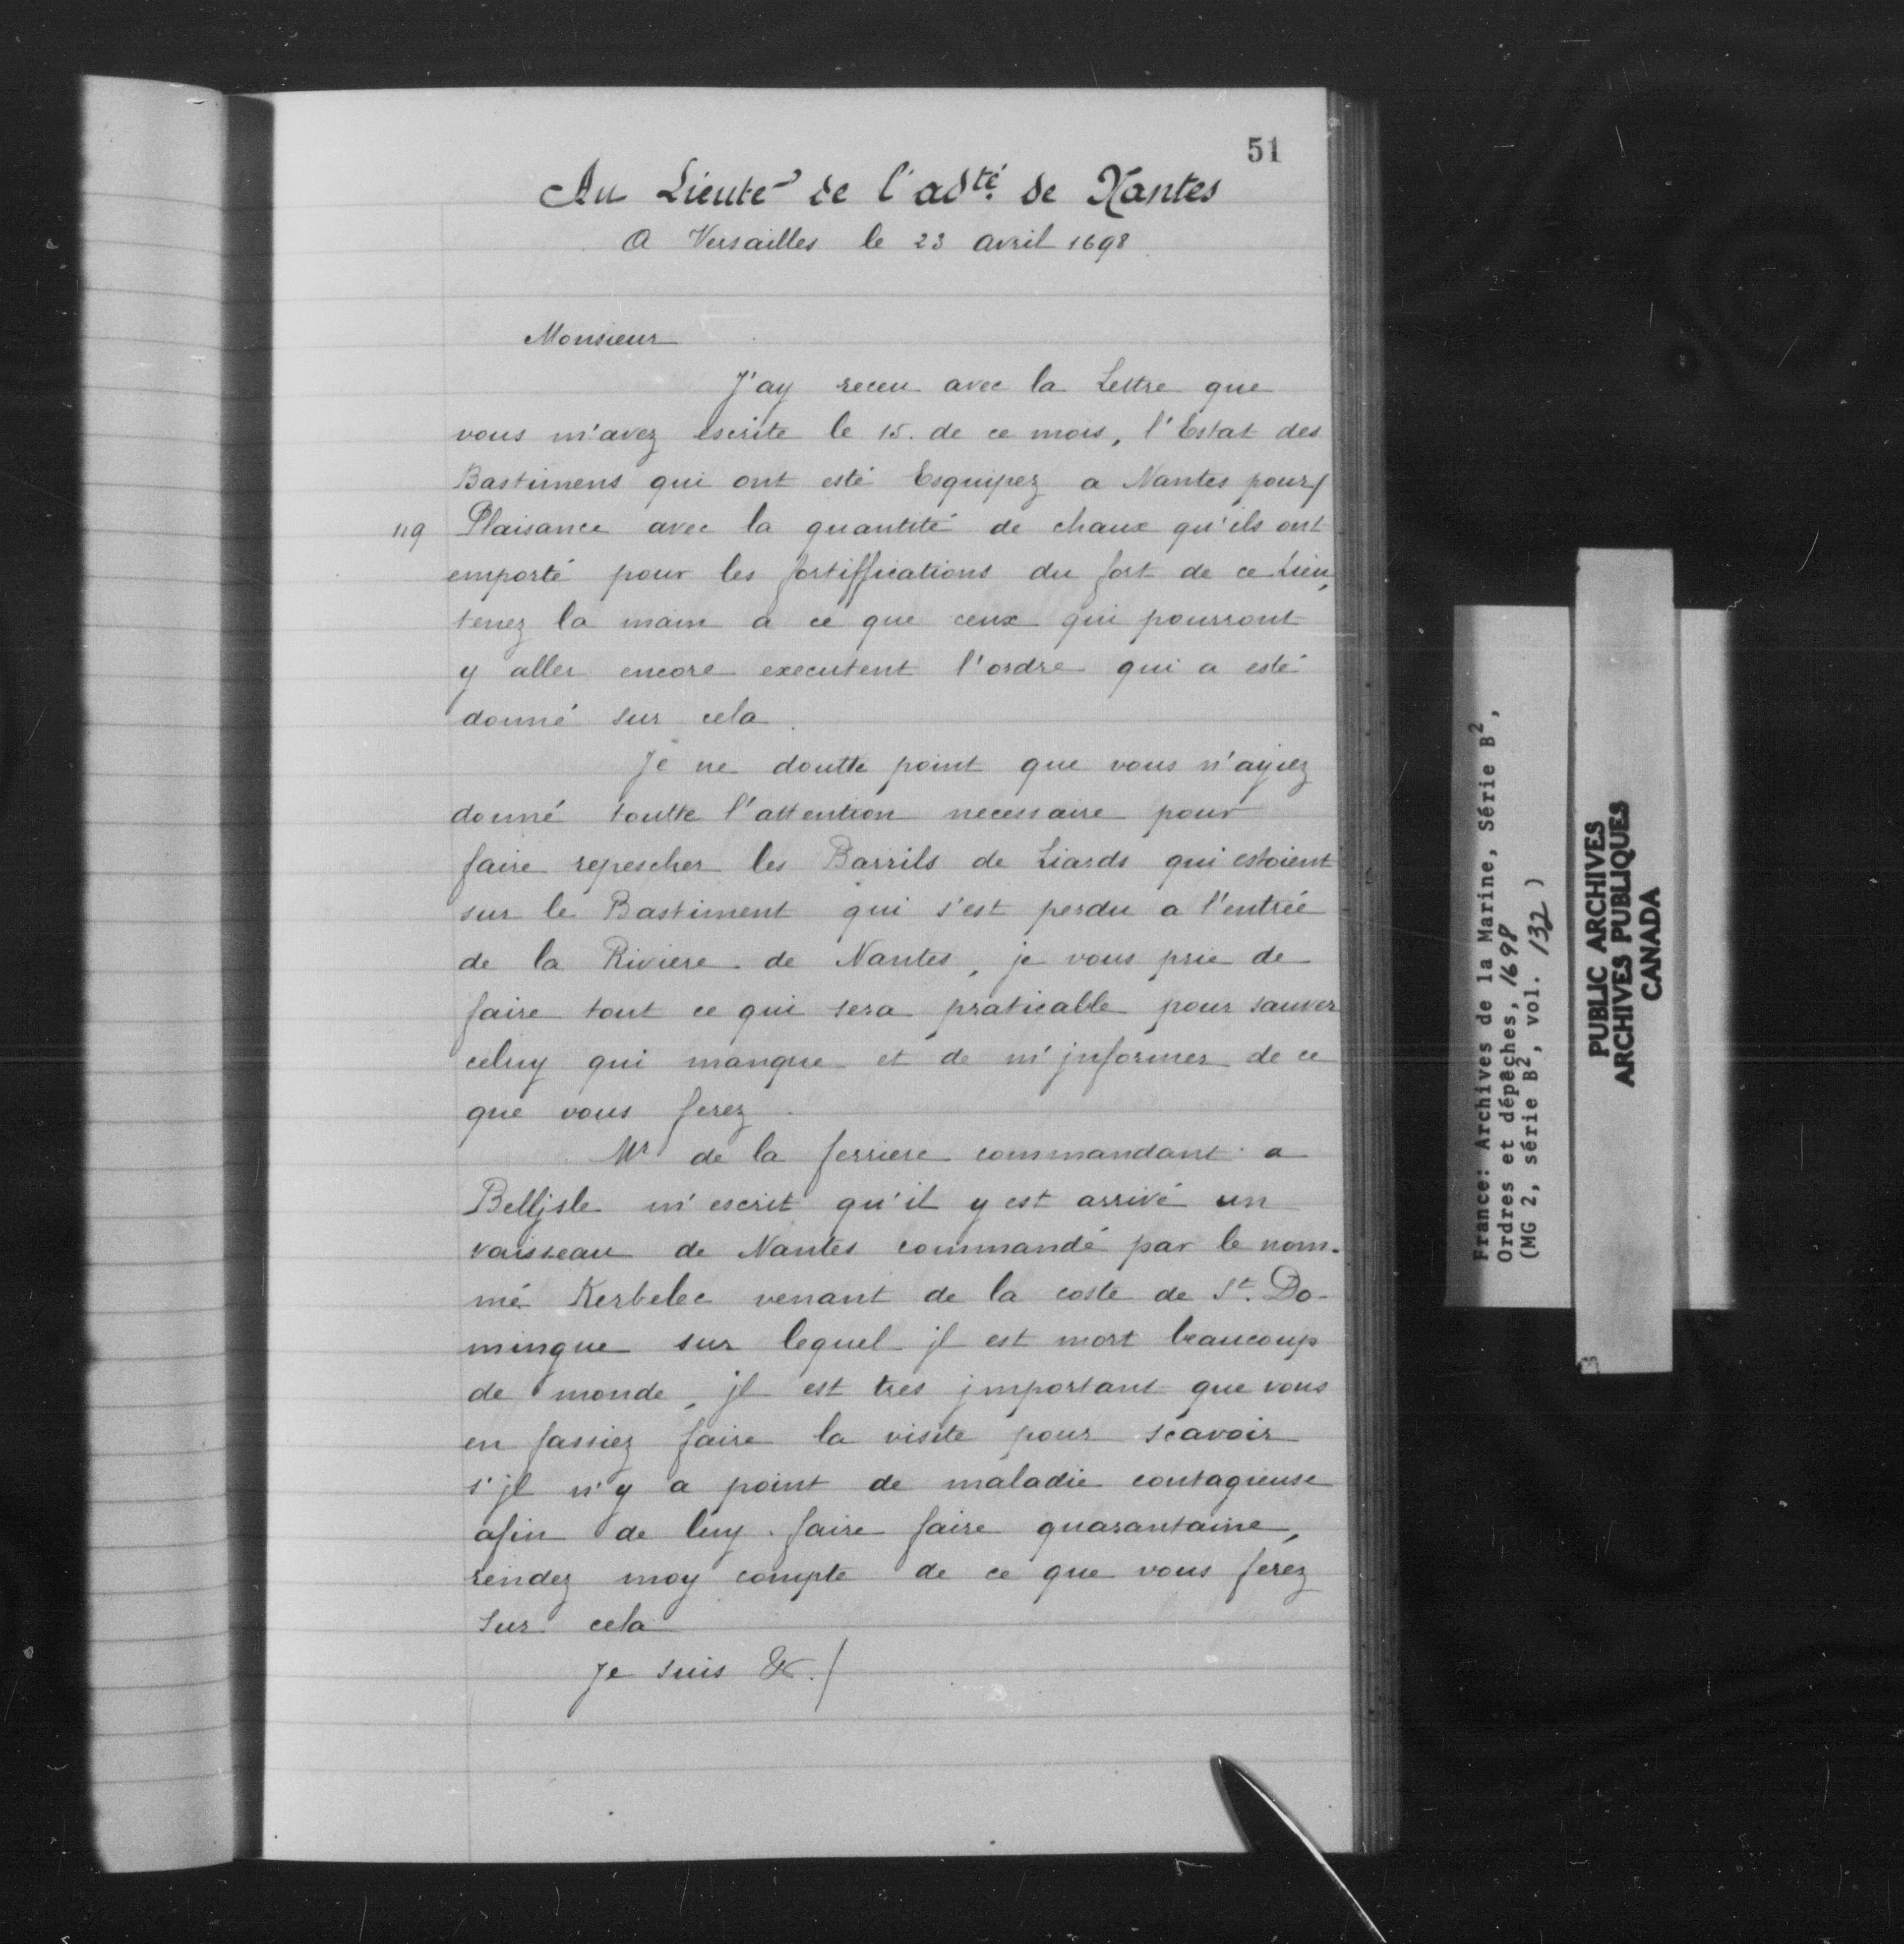 51
Au Lieute de l'adté de Nantes
A Versailles le 23 avril 1698
Monsieur
J'ay receu avec la Lettre que
vous m'avez escrite le 15. de ce mois, l'Estat des
Bastimens qui ont esté Esquipez a Nantes pour/
119 Plaisance avec la quantité de chaux qu'ils ont
emporté pour les fortiffications du fort de ce Lieu,
tenez la main a ce que ceux qui pourront
y aller encore executent l'ordre qui a esté
donné sur cela.
Je ne doutte point que vous n'ayiez
donné toutte l'attention necessaire pour
faire repescher les Barrils de Liards qui estoient
sur le Bastiment qui s'est perdu a l'entrée
de la Riviere de Nantes, je vous prie de
faire tout ce qui sera praticable pour sauver
celuy qui manque et de m'jnformer de ce
que vous ferez.
Mr de la ferriere commandant a
Bellisle m'escrit qu'il y est arrivé un
vaisseau de Nantes commandé par le nom-
mé Kerbelec venant de la coste de St. Do-
mingue sur lequel jl est mort beaucoup
de monde, jl est tres jmportant que vous
en fassiez faire la visite pour scavoir
s'jl n'y a point de maladie contagieuse
afin de luy faire faire quarantaine,
rendez moy compte de ce que vous ferez
sur cela
Je suis &c./
France: Archives de la Marine, Série B2,
Ordres et dépêches, 1698
(MG 2, série B2, vol. 132)
PUBLIC ARCHIVES
ARCHIVES PUBLIQUES
CANADA